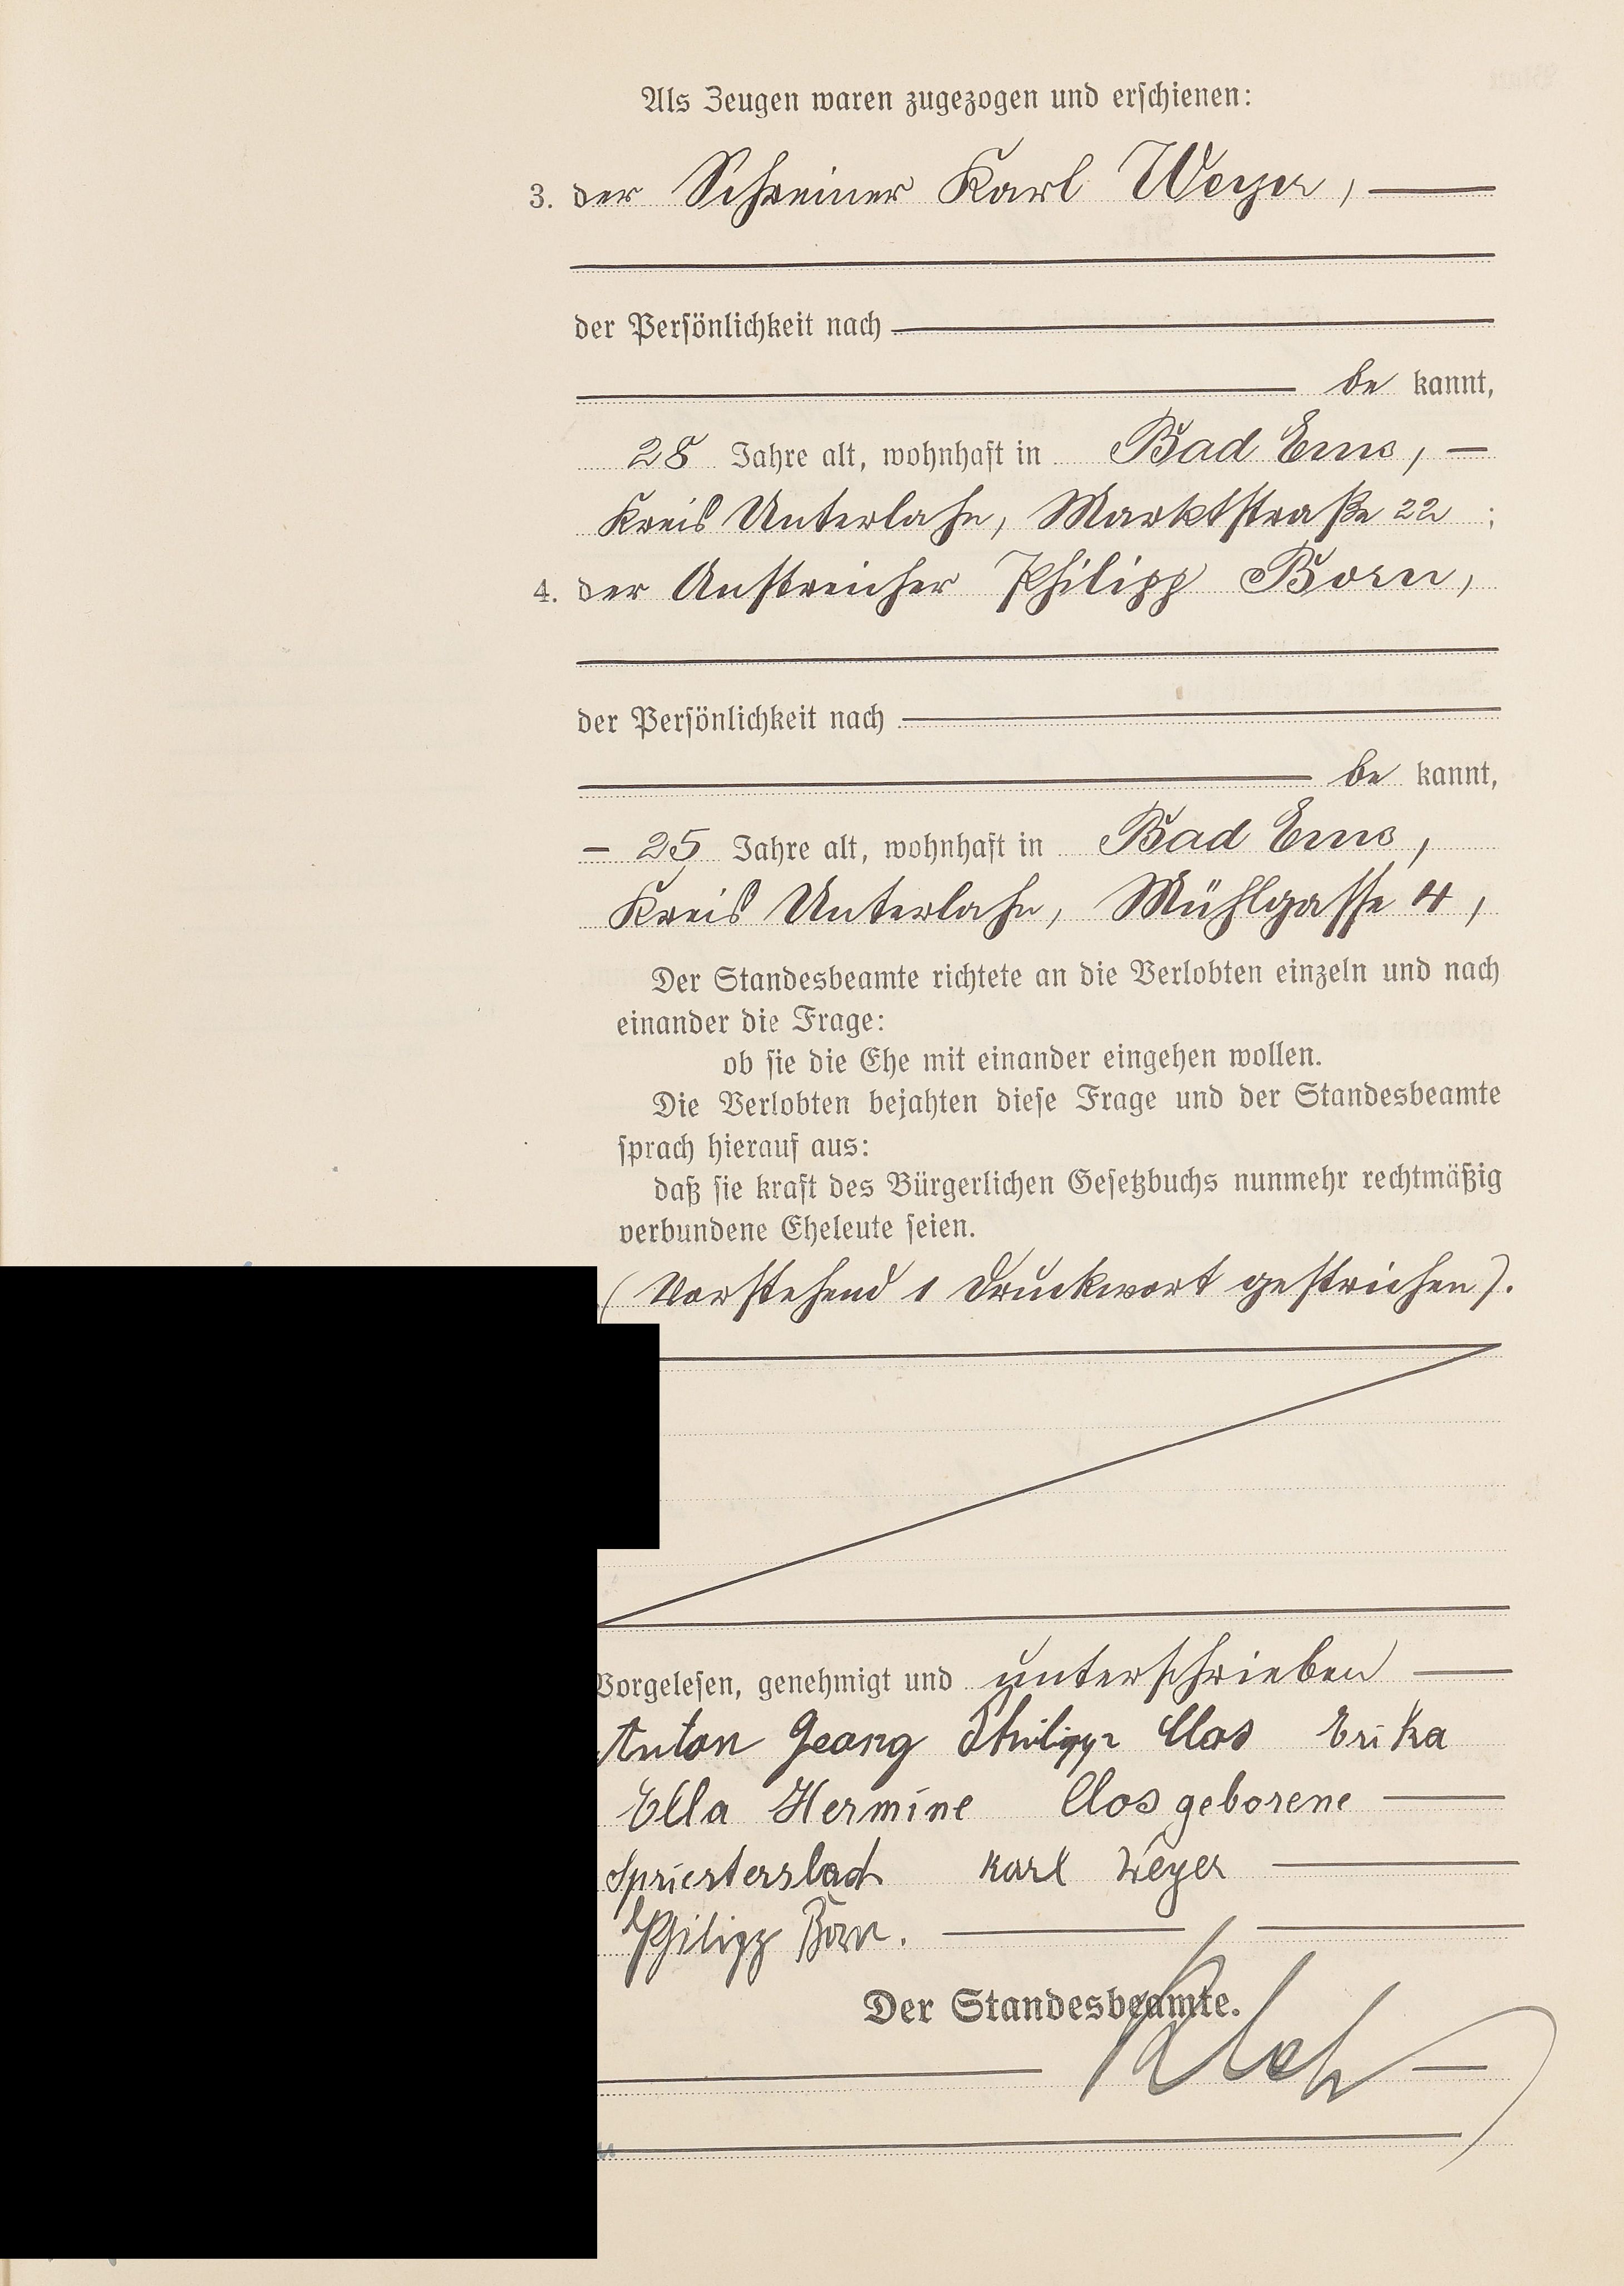 Als Zeugen waren zugezogen und erschienen:
3. der Schreiner Karl Weyer,
der Persönlichkeit nach
be kannt,
28 Jahre alt, wohnhaft in Bad Ems,
Kreis Unterlahn, Marktstraße 22 ;
4. der Anstreicher Philipp Born,
der Persönlichkeit nach
be kannt,
25 Jahre alt, wohnhaft in Bad Ems,
Kreis Unterlahn, Mühlgasse 4,
Der Standesbeamte richtete an die Verlobten einzeln und nach
einander die Frage:
ob sie die Ehe mit einander eingehen wollen.
Die Verlobten bejahten diese Frage und der Standesbeamte
sprach hierauf aus:
daß sie kraft des Bürgerlichen Gesetzbuchs nunmehr rechtmäßig
verbundene Eheleute seien.
(Vorstehend 1 Druckwort gestrichen).
Vorgelesen, genehmigt und unterschrieben
Anton Georg Philipp Clos Erika
Ella Hermine Clos geborene
Spriestersbach Karl Weyer
Philipp Born.
Der Standesbeamte.